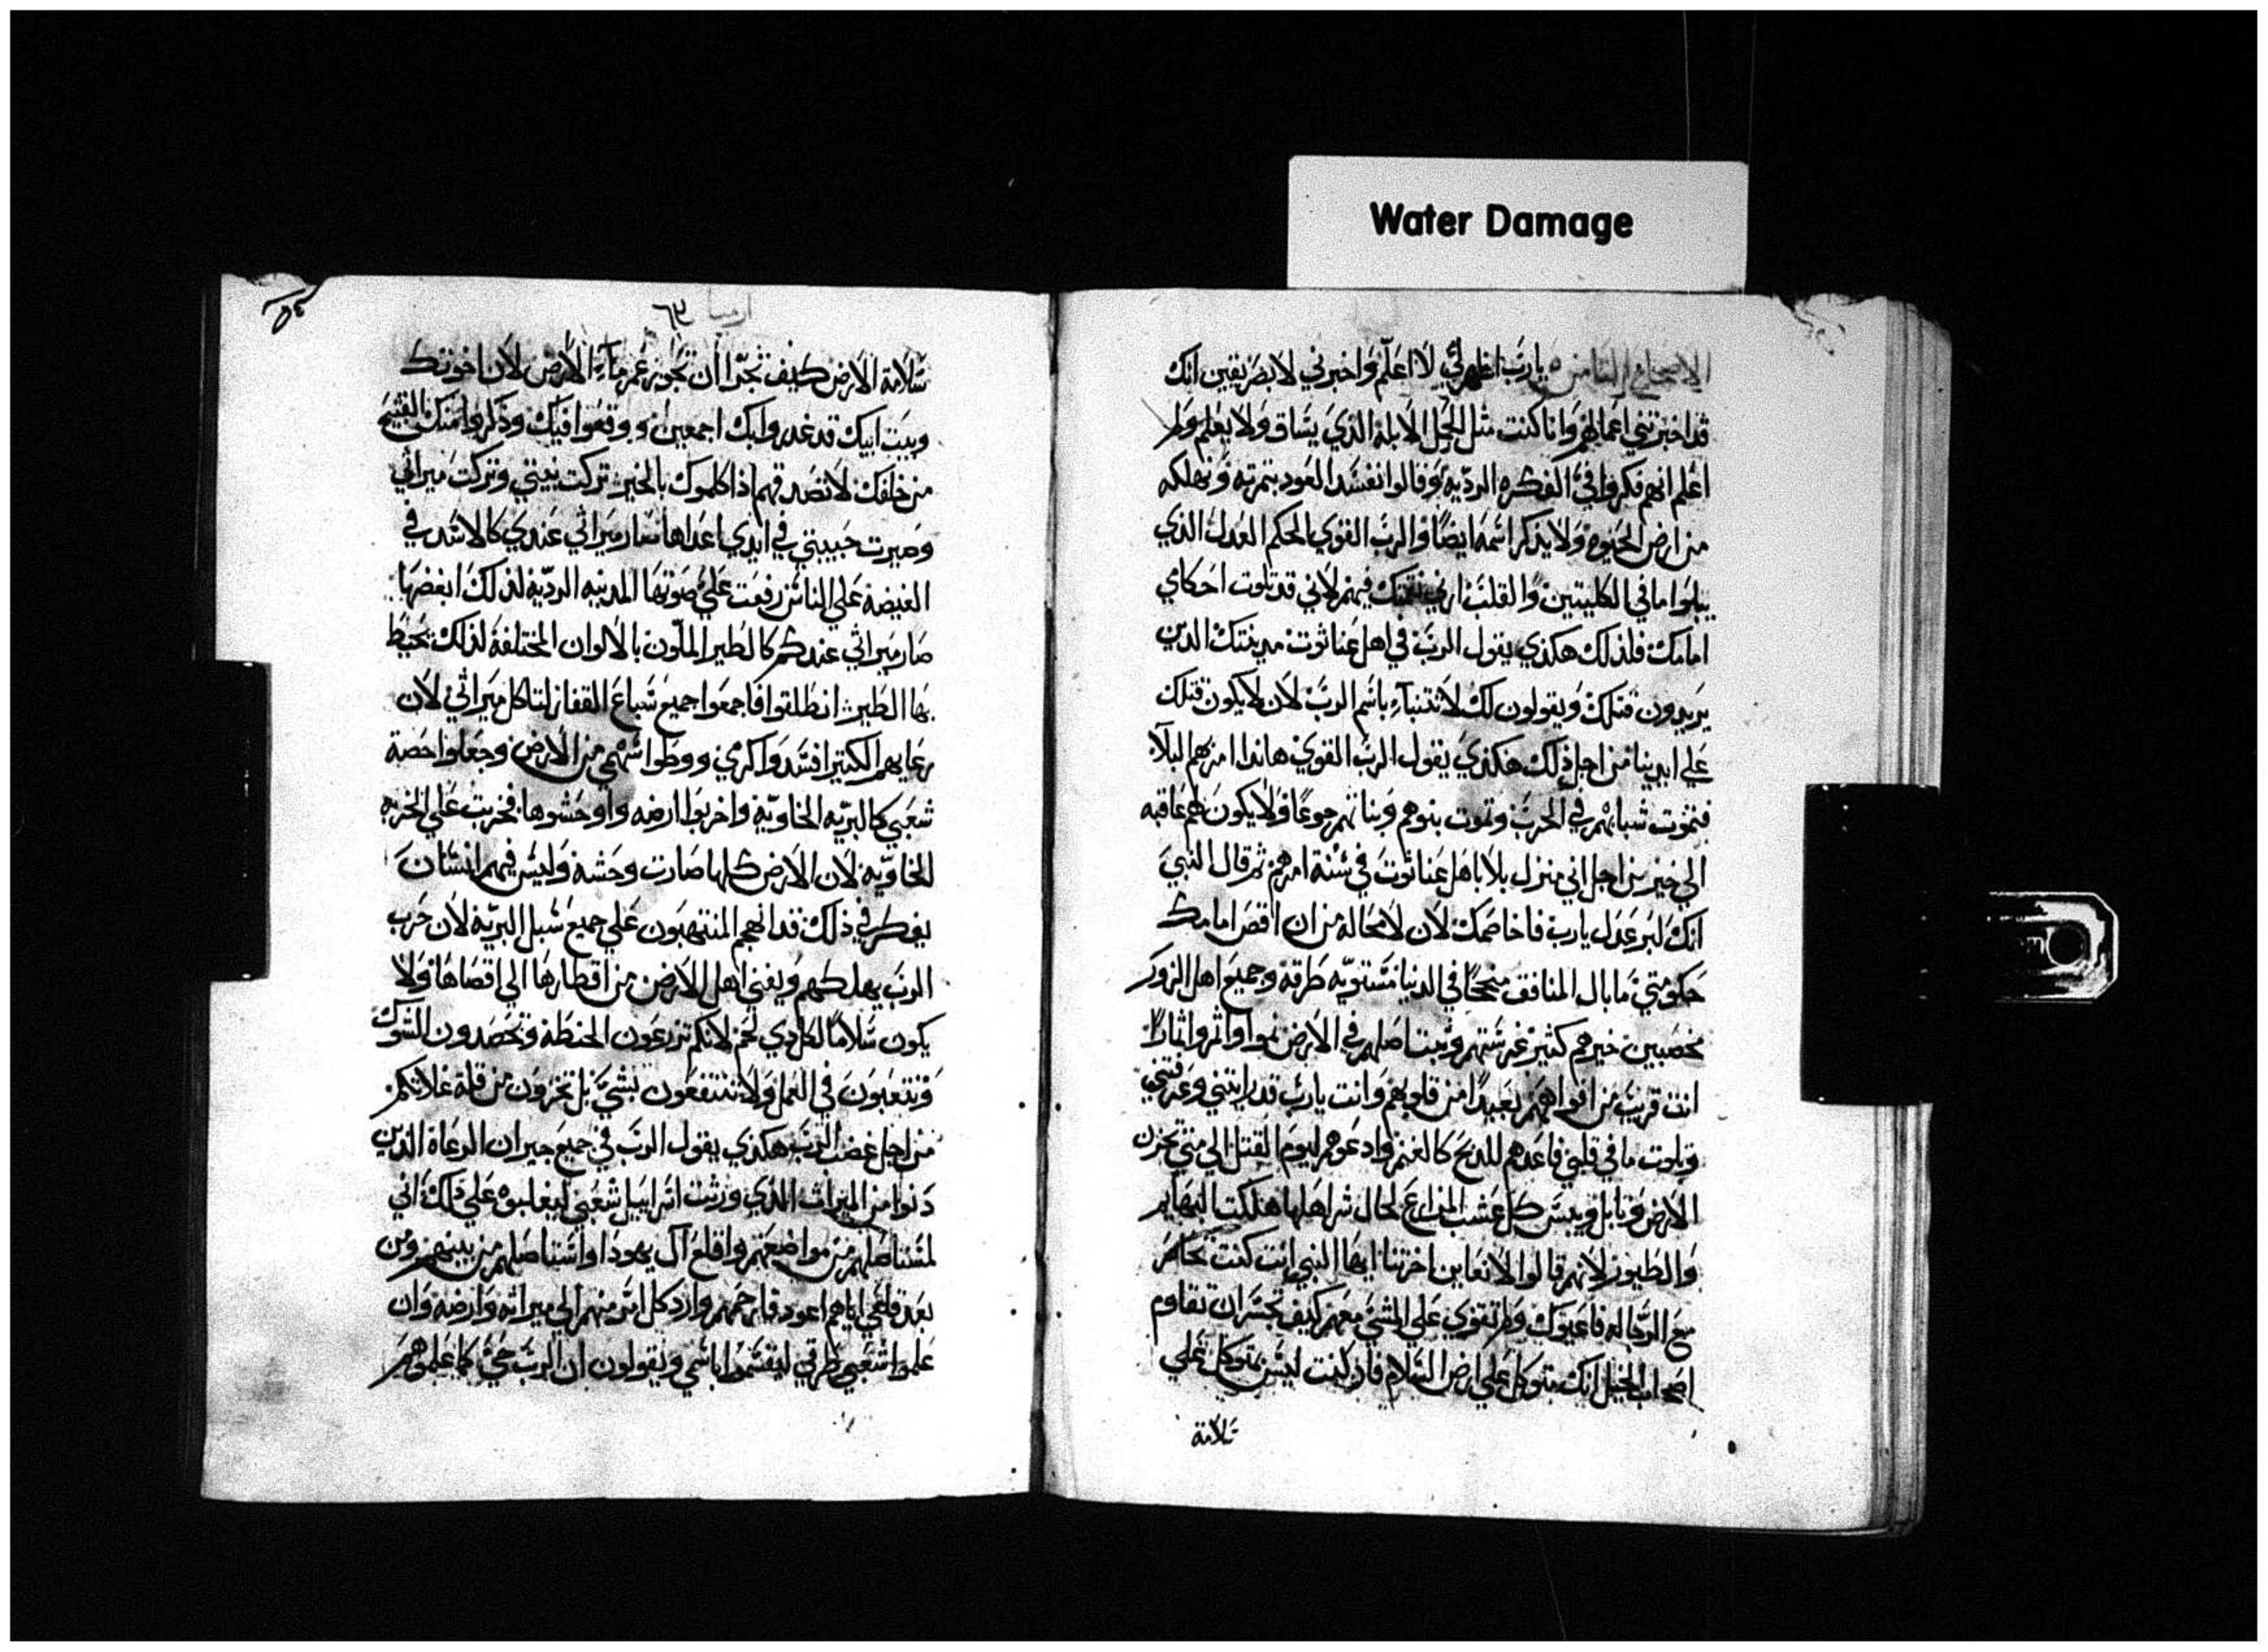 Water Damage
الاصحاح الثامن يارب اظهر لي لا اعلم واخبرني لابصر يقين انك
قد اخبرتني اعمالهم وانا كنت مثل الحمل الابله الذي يساق ولا يعلم ولم
اعلم انهم فكروا في الفكره الرديه وقالوا نفسد العود بثمرته ونهلكه
من ارض الحيوه ولا يذكر اسمه ايضًا والرب القوي الحكم العدل الذي
يبلوا ما في الكليتين والقلب ارني نقمتك فيهم لاني قد تلوت احكامي
امامك فلذلك هكذي يقول الرب في اهل عناثوت مدينتك الذين
يريدون قتلك ويقولون لك لا تتنباء باسم الرب لان لا يكون قتلك
علي ايدينا من اجل ذلك هكذي يقول الرب القوي هاندا امر بهم البلاء
فتموت شبابهم في الحرب وتموت بنوهم وبناتهم جوعًا ولا يكون لهم عاقبه
الي خير من اجل اني منزل بلا باهل عناثوت في سنة امرهم ثم قال النبي
انك لبر عدل يارب فاخاصمك لان لا محالة من ان اقص امامك
حكومتي ما بال المنافق منجحًا في الدنيا مستويه طرقه وجميع اهل الزور
مخصبين خيرهم كثير غرستهم وثبت اصلهم في الارض نموا واثمروا اثمارًا
انت قريب من افواههم بعيدًا من قلوبهم وانت يارب قد رايتني وعرفتني
وبلوت ما في قلبي فاعدهم للذبح كالغنم وادعوهم ليوم القتل الي متي تحزن
الارض وتابل ويبس كل عشب المزارع لحال شر اهلها هلكت البهايم
والطيور لانهم قالوا لا تعاين اخرتنا ايها النبي انت كنت تحاضر
مع الرجاله فاعيوك ولم تقوي علي المشي معهم كيف تجسر ان تقاوم
اصحاب الخيل انك متوكل علي ارض السلام فان كنت ليس تتوكل علي
سلامة
ارميا
٦٩
٥٤
سلامة الارض كيف تجترا ان تجوز غمر ماء الارض لان اخوتك
وبيت ابيك قد غدروا بك اجمعين ووقعوا فيك وذكروا منك القبيح
من خلفك لا تصدقهم اذا كلموك بالخير تركت بيتي وتركت ميراثي
وصيرت حبيبتي في ايدي اعداها صار ميراثي عندي كالاسد في
الغيضة علي الناس رفعت علي صوتها المدينه الرديه لذلك ابغضها
صار ميراثي عندكم كالطير الملون بالالوان المختلفة لذلك تحيط
بها الطير انطلقوا فاجمعوا جميع سباع القفار لتاكل ميراثي لان
رعايهم الكثير افسدوا كرمي ووطوا سهمي من الارض وجعلوا حصة
شعبي كالبريه الخاويه واخربوا ارضه واوحشوها فخربت علي الخربه
الخاويه لان الارض كلها صارت وحشه وليس فيهم انسان
يفكر في ذلك قد انهجم المنتهبون علي جميع سبل البريه لان حرب
الرب يهلكهم ويفني اهل الارض من اقطارها الي اقصاها ولا
يكون سلامًا لكل دي لحم لانكم تزرعون الحنطة وتحصدون الشوك
وتتعبون في العمل ولا تنتفعون بشي بل تخزون من قلة غلاتكم
من اجل غضب الرب هكذي يقول الرب في جميع جيران الرعاة الذين
دنوا من الميراث الذي ورثت اسراييل شعبي ليغلبوه علي ذلك اني
لمستاصلهم من مواضعهم واقلع آل يهودا واستاصلهم من بينهم ومن
بعد قلعي اياهم اعود فارحمهم وارد كل امر منهم الي ميراثه وارضه وان
علموا شعبي طرقي ليقسموا باسمي ويقولون ان الرب حي كما علموهم